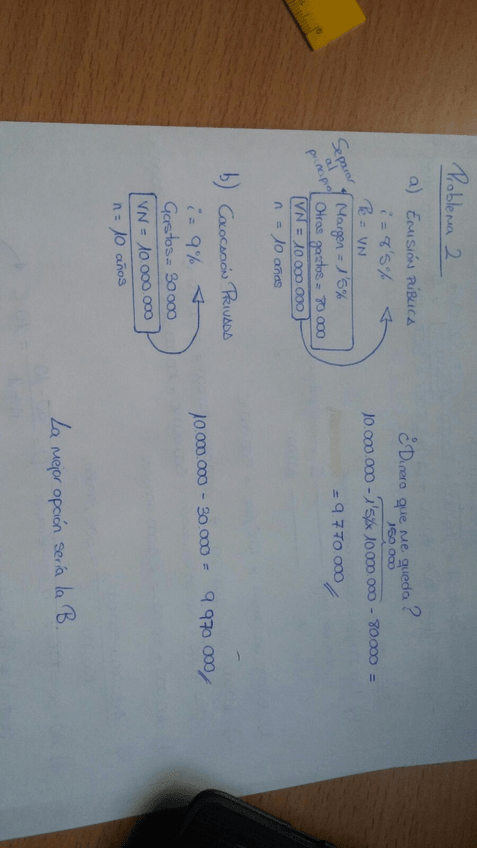 Problema 2
a) EMISIÓN PÚBLICA
i = 8'5%
Pe = VN
Separar al principal
Margen = 1'5%
Otros gastos = 80 000
VN = 10 000 000
n = 10 años
¿Dinero que me queda?
150 000
10 000.000 - 1'5% x 10 000.000 - 80000 =
= 9 770 000 //
b) COLOCACIÓN PRIVADA
i = 9%
Gastos = 30 000
VN = 10 000 000
n = 10 años
10 000.000 - 30.000 = 9 970 000 //
La mejor opción sería la B.